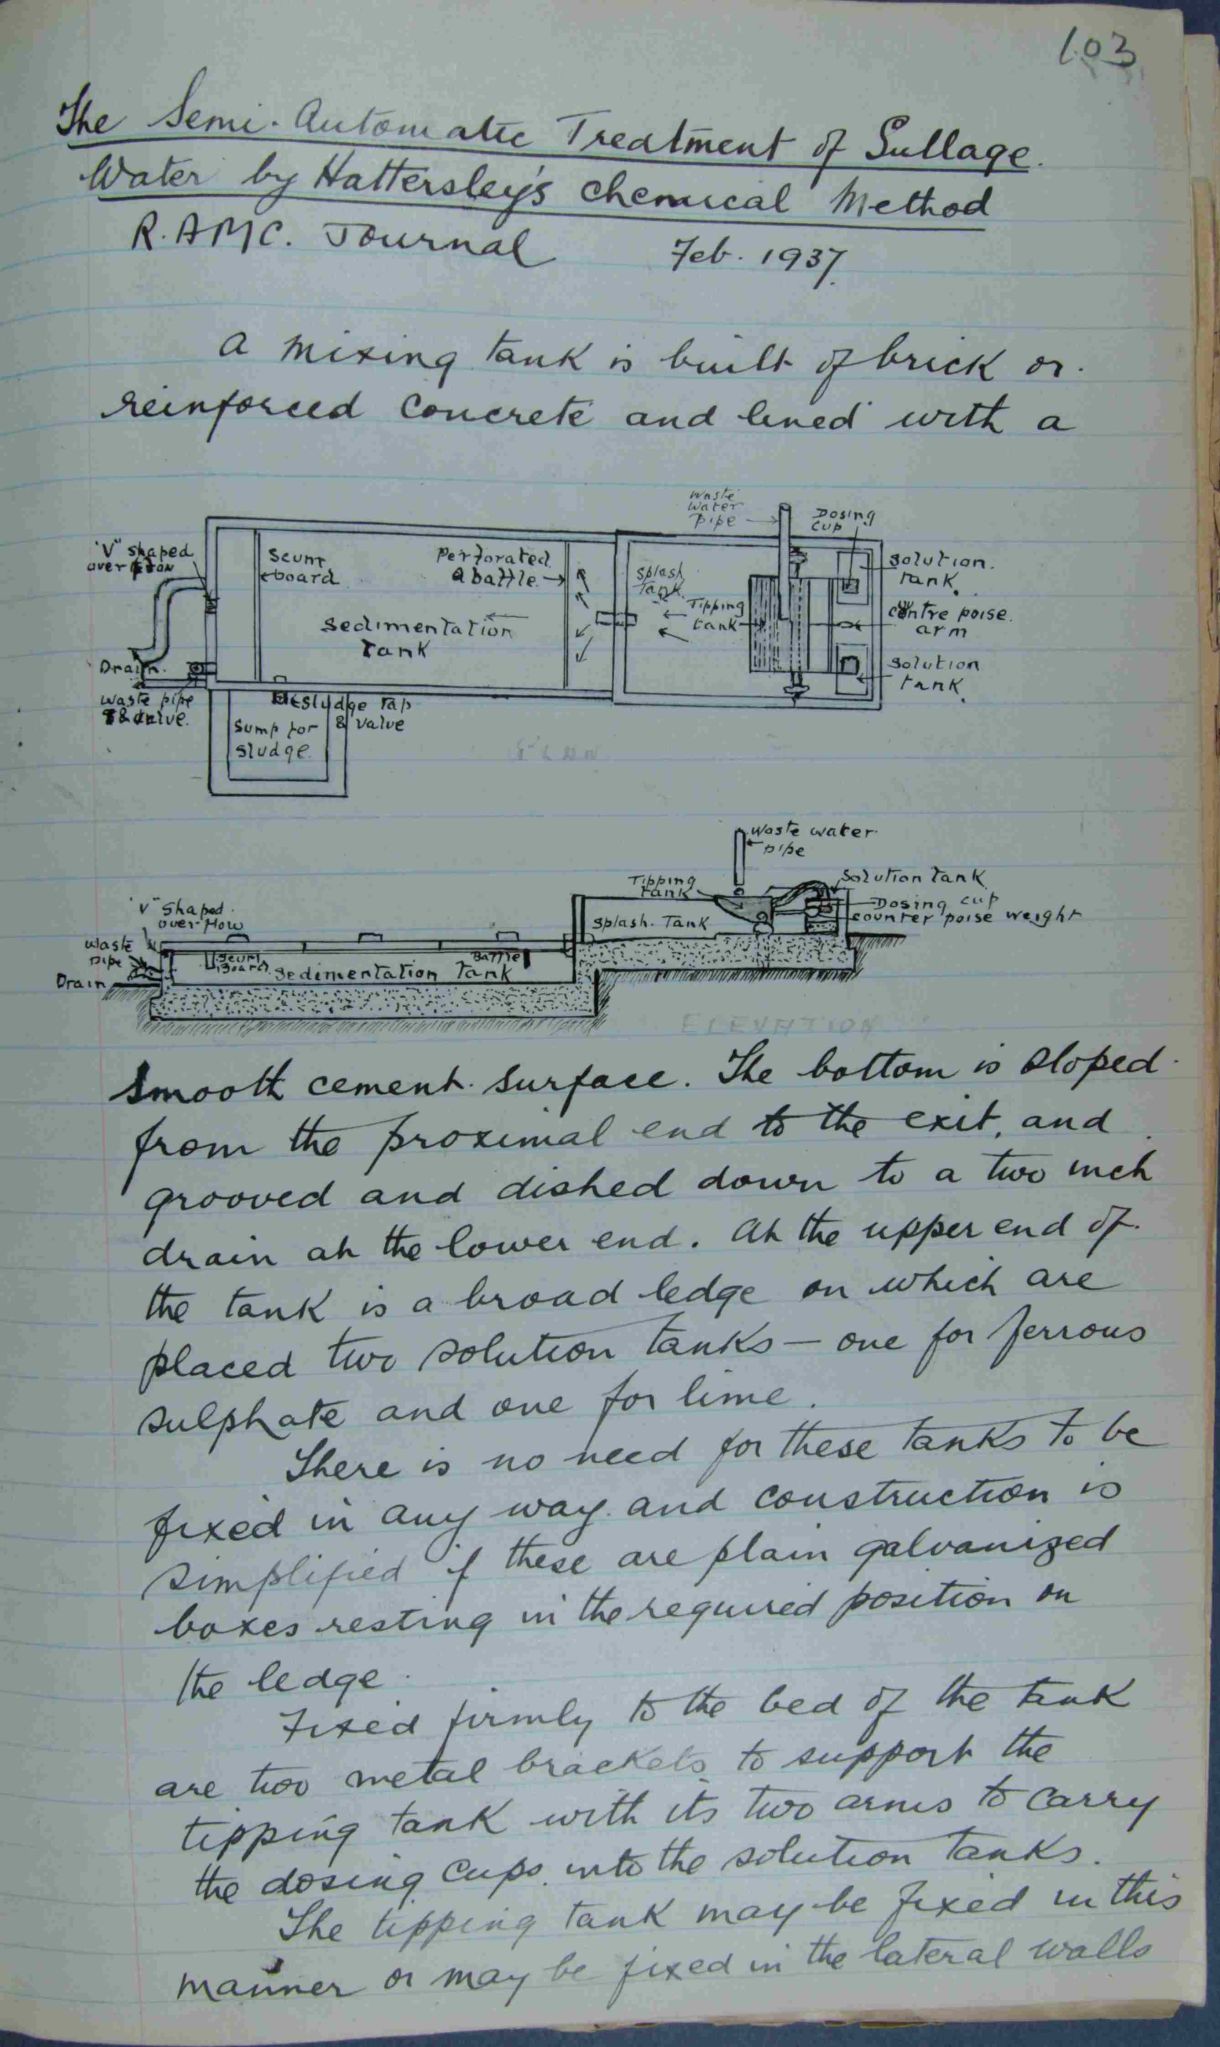 103
The Semi-Automatic Treatment of Sullage
Water by Hattersley's Chemical Method
R.A.M.C. Journal Feb. 1937.
A mixing tank is built of brick or
reinforced concrete and lined with a
Waste
Water
pipe
Dosing
Cup
"V" shaped
overflow
Scum
board
Perforated
baffle
Splash
Tank
Tipping
tank
Solution
Tank.
Centre poise
arm
Sedimentation
Tank
Drain.
Waste pipe
& valve.
Solution
tank.
Desludge Tap
& valve
Sump for
sludge.
PLAN
Waste water
pipe
Tipping
tank
Solution Tank
Dosing cup
counter poise weight
"V" Shaped
over-flow
Splash. Tank
Waste
pipe
Scum
Board
Baffle
Sedimentation Tank
Drain
ELEVATION
smooth cement surface. The bottom is sloped
from the proximal end to the exit, and
grooved and dished down to a two inch
drain at the lower end. At the upper end of
the tank is a broad ledge on which are
placed two solution tanks — one for ferrous
sulphate and one for lime.
There is no need for these tanks to be
fixed in any way and construction is
simplified if these are plain galvanized
boxes resting in the required position on
the ledge.
Fixed firmly to the bed of the tank
are two metal brackets to support the
tipping tank with its two arms to carry
the dosing cups into the solution tanks.
The tipping tank may be fixed in this
manner or may be fixed in the lateral walls